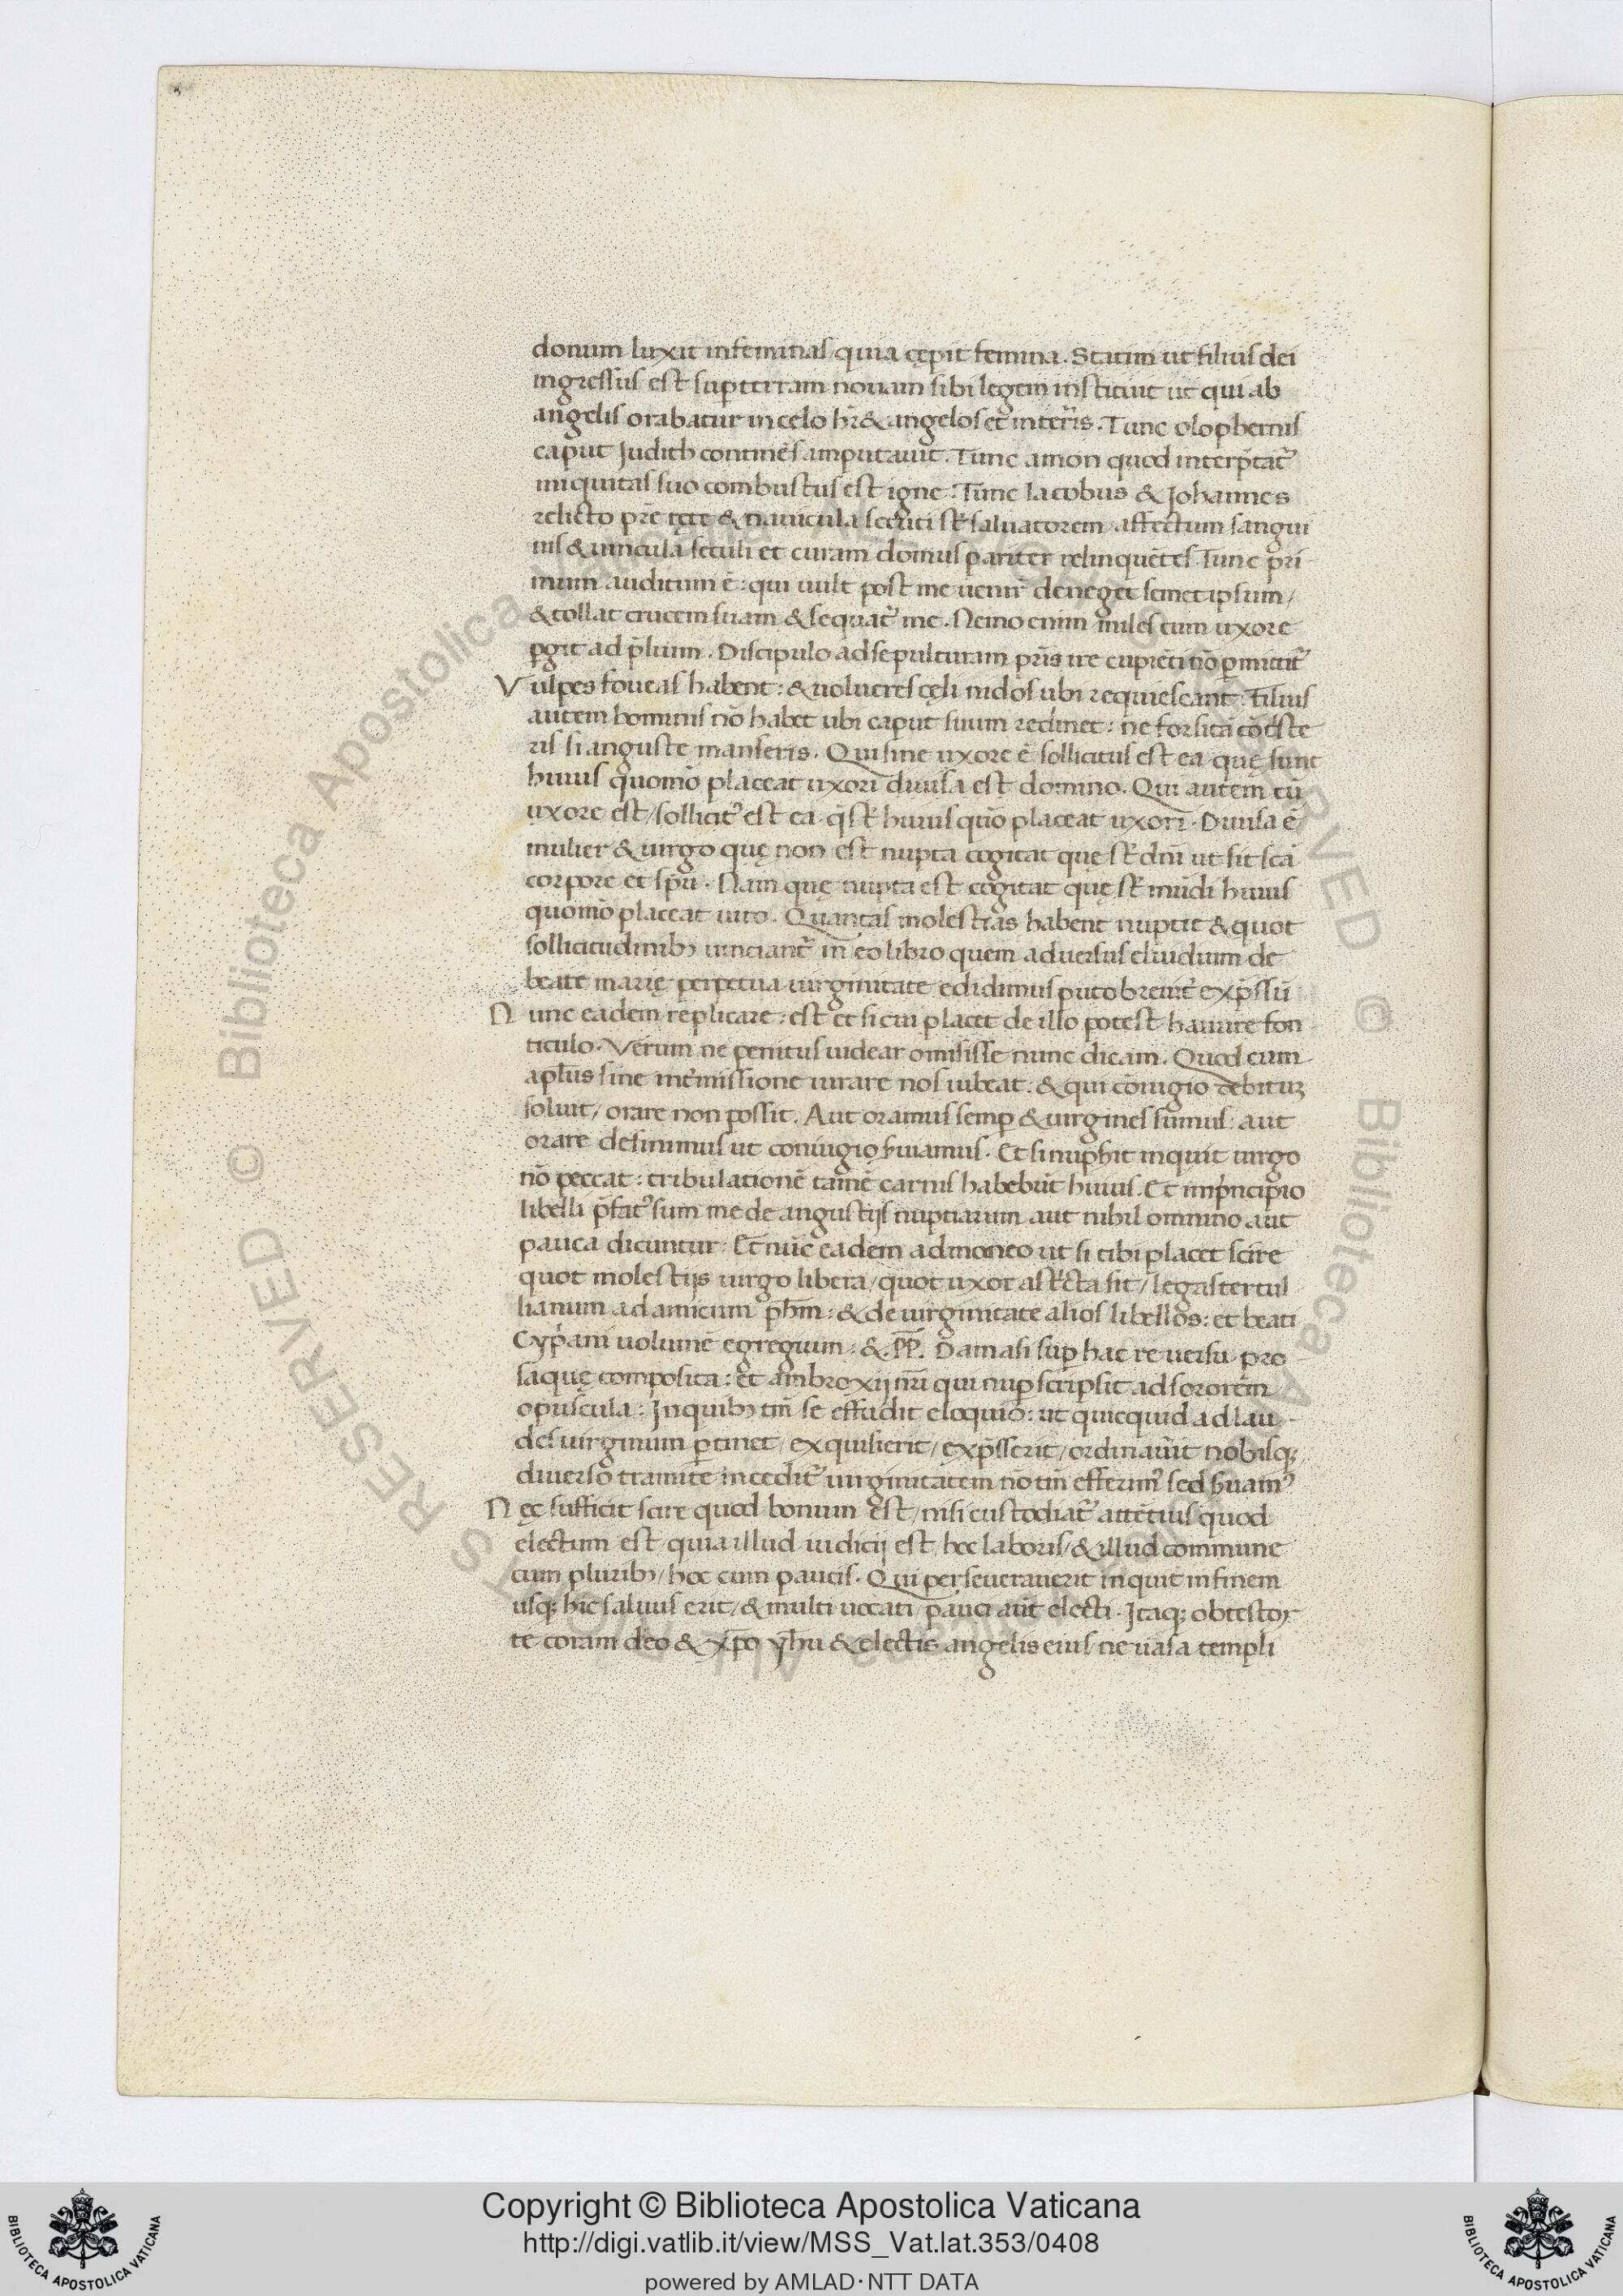 donum luxit in feminas quia cępit femina. Statim ut filius dei
ingressus est sup terram nouam sibi legem instituit ut qui ab
angelis orabatur in celo hr̄& angelos et in terris. Tunc olophernis
caput Judith continēs amputauit. Tunc amon quod interp̄tat᷑
iniquitas suo combustus est igne: Tunc Iacobus & Johannes
relicto pr̄e rete & nauicula secuti st̄ saluatorem affectum sangui
nis & uincula seculi et curam domus pariter relinquētes. Tunc pri
mum auditum ē: qui uult post me uenir̄ deneget semet ipsum/
& tollat crucem suam & sequat᷑ me. Nemo enim miles cum uxore
ꝑgit ad p̄lium. Discipulo ad sepulturam pr̄is ire cupiēti nō ꝑmittit᷑
Vulpes foueas habent: & uolucres cęli nidos ubi requiescant: filius
autem hominis nō habet ubi caput suum reclinet: ne forsitā cōt̄ste
ris si anguste manseris. Qui sine uxore ē sollicitus est ea quę sunt
huius quomō placeat uxori diuisa est domino. Qui autem cū
uxore est/ sollicit᷒ est ea q̄ st̄ huius quō placeat uxori. Diuisa ē
mulier & uirgo quę non est nupta cogitat quę st̄ dn̄i ut sit scā
corpore et sp̄u. Nam quę nupta est cogitat quę st̄ mūdi huius
quomō placeat uiro. Quantas molestias habent nuptię & quot
sollicitudinibꝫ uinciant᷑ in eo libro quem aduersus eluidium de
beate marię perpetua uirginitate edidimus puto breuit̄ exp̄ssū
Nunc eadem replicare: est et si cui placet de illo potest haurire fon
ticulo. Verum ne penitus uidear omisisse nunc dicam. Quod cum
apl̄us sine int̄missione iurare nos iubeat: & qui cōiugio debitum
soluit/ orare non possit. Aut oramus semꝑ & uirgines sumus: aut
orare desinimus ut coniugio s̄uiamus. Et si nupsit inquit uirgo
nō peccat: tribulationē tamē carnis habebūt huius. Et in p̄ncipio
libelli p̄fat᷒ sum me de angustijs nuptiarum aut nihil omnino aut
pauca dicuntur: Et nūc eadem admoneo ut si tibi placet scire
quot molestijs uirgo libera/ quot uxor ast̄cta sit/ legas tertul
lianum ad amicum ph̄m: & de uirginitate alios libellos: et beati
Cyp̄ani uolumē egregium: & P̄P̄. Damasi suꝑ hac re uersu pro
saquę composita: et ambroxij nr̄i qui nuꝑ scripsit ad sororem
opuscula: In quibꝫ tm̄ se effudit eloquio: ut quicquid ad lau
des uirginum ꝑtinet/ exquisierit/ exp̄sserit/ ordinau̅it nobisqꝫ
diuerso tramite incedit᷑ uirginitatem nō tm̄ efferim᷒ sed s̄uam᷒
Nęc sufficit scire quod bonum est/ nisi custodiat᷑ attētius quod
electum est quia illud iudicij est/ hoc laboris/ & illud commune
cum pluribꝫ/ hoc cum paucis. Qui perseuerauerit inquit in finem
usqꝫ hic saluus erit/ & multi uocati pauci aūt electi. Itaqꝫ obtestor
te coram deo & xp̄o yh̄u & electis angelis eius ne uasa templi
Copyright © Biblioteca Apostolica Vaticana
http://digi.vatlib.it/view/MSS_Vat.lat.353/0408
powered by AMLAD·NTT DATA
BIBLIOTECA APOSTOLICA VATICANA
BIBLIOTECA APOSTOLICA VATICANA